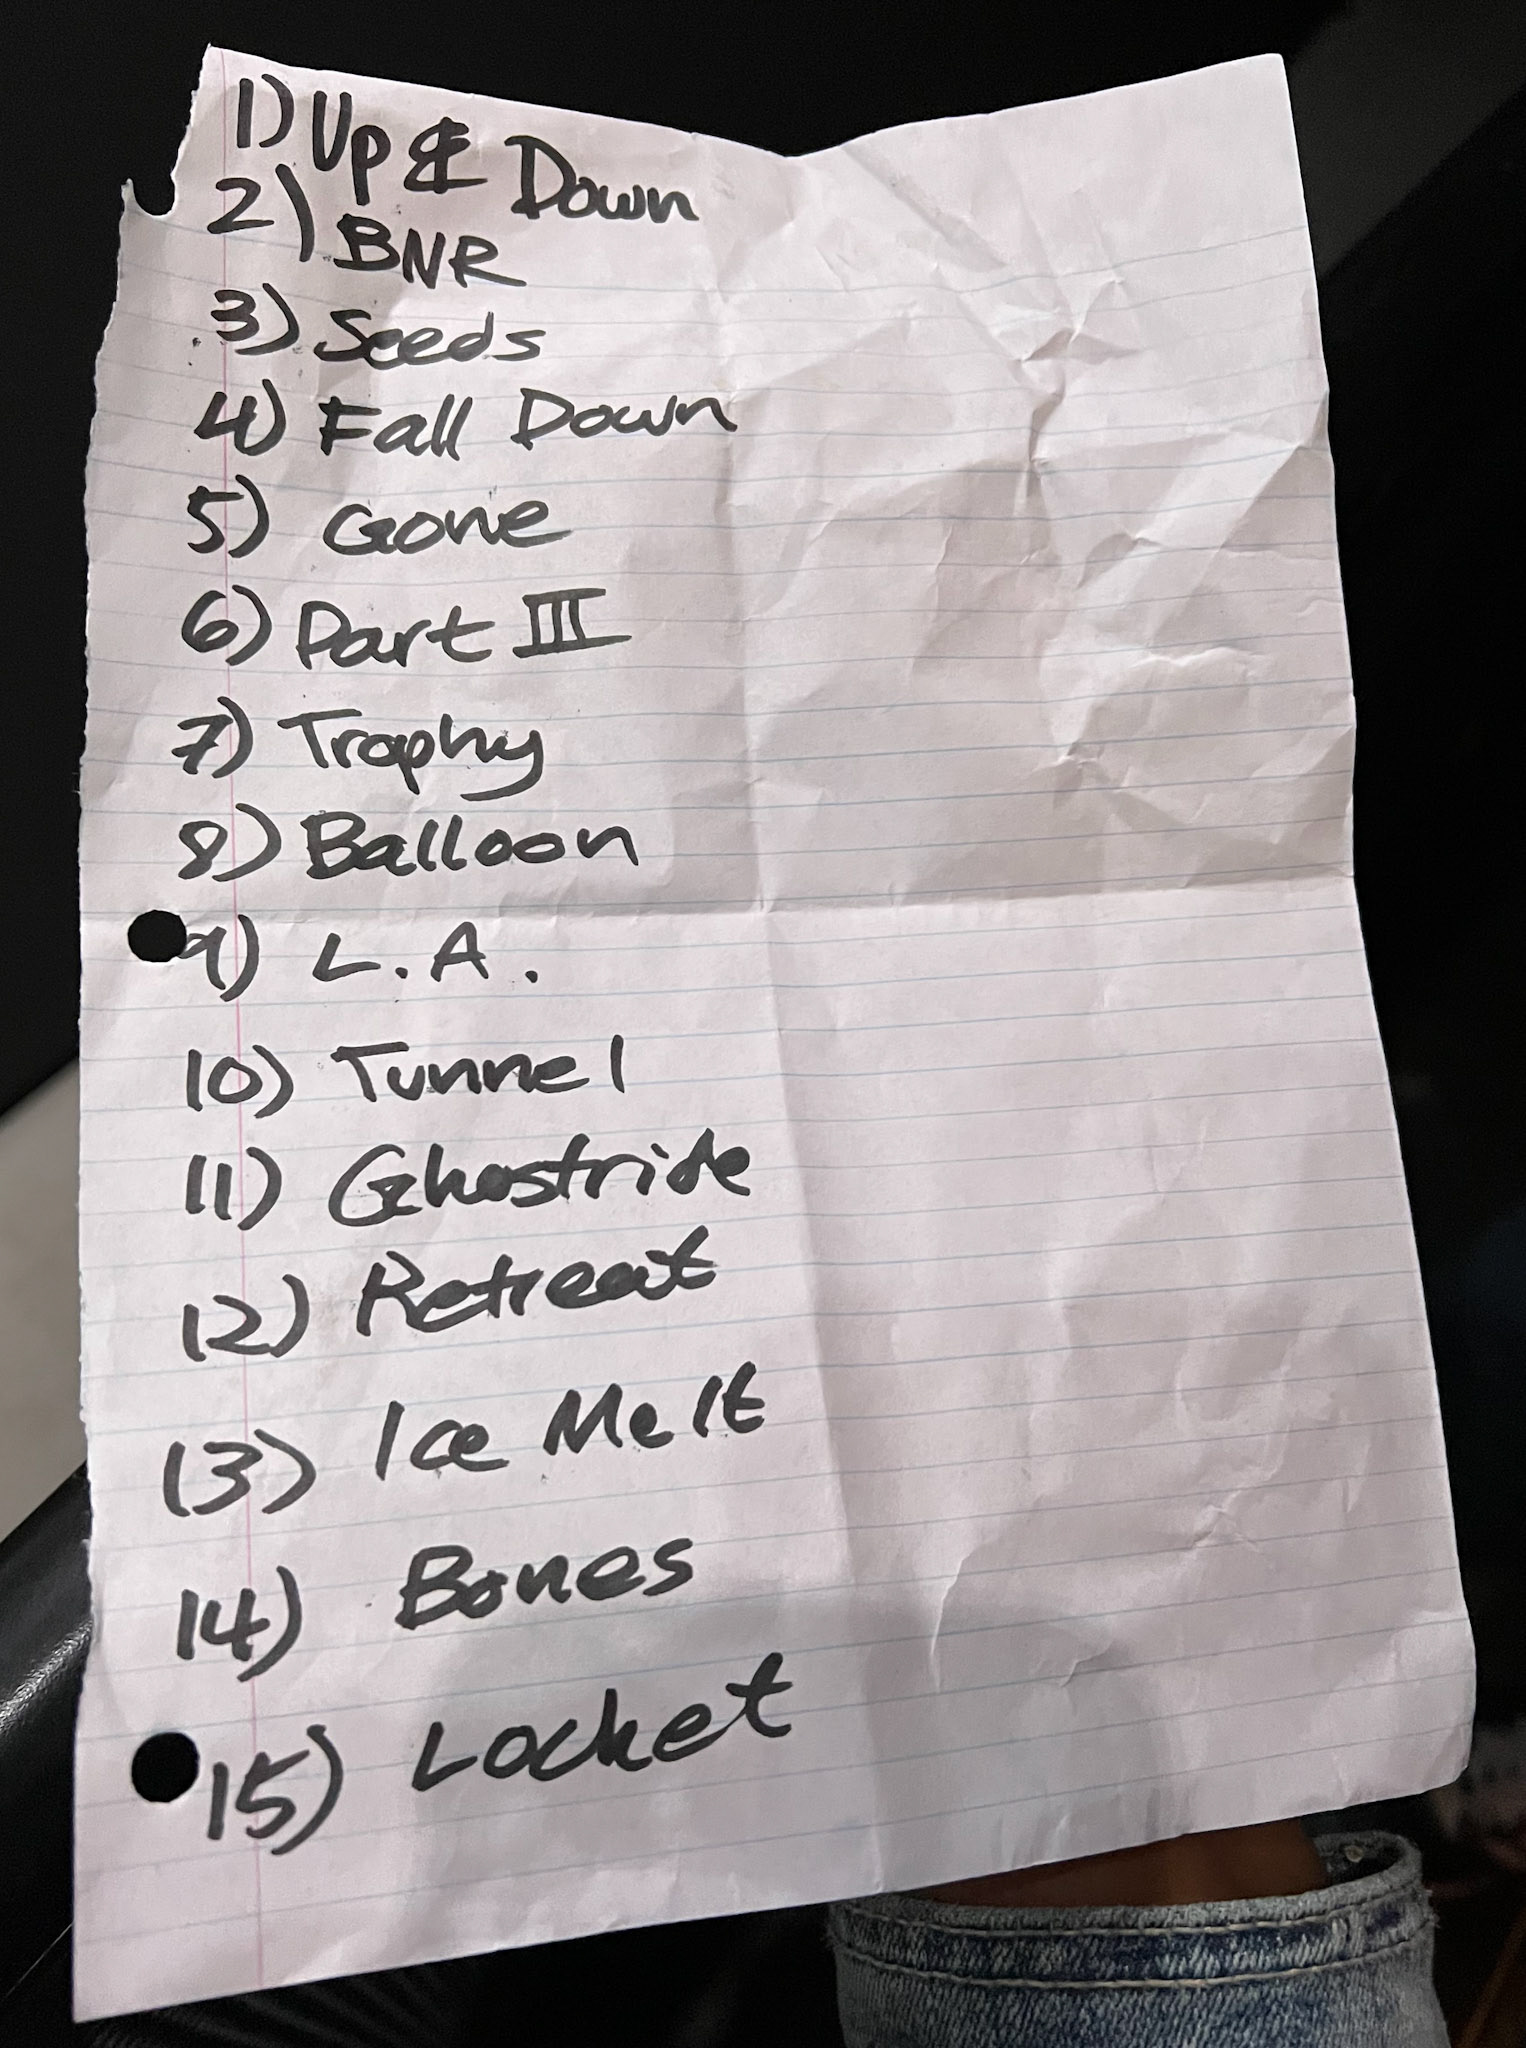 1) Up & Down
2) BNR
3) Seeds
4) Fall Down
5) Gone
6) Part III
7) Trophy
8) Balloon
9) L.A.
10) Tunnel
11) Ghostride
12) Retreat
13) Ice Melt
14) Bones
15) Locket